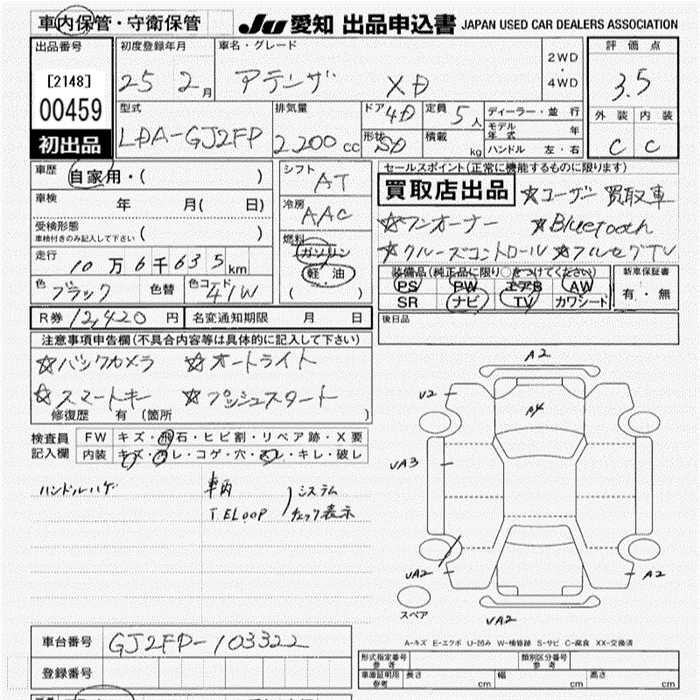 車内保管・守衛保管
JU 愛知 出品申込書 JAPAN USED CAR DEALERS ASSOCIATION
出品番号 初度登録年月 車名・グレード 2WD・4WD 評価点
[2148] 25 2月 アテンザ XD 3.5
00459
初出品
型式 排気量 ドア 4D 定員 5人 ディーラー・並行 外装 内装
モデル年式 年
LDA-GJ2FP 2,200cc 形状 SD 積載 kg ハンドル 左・右 C C
車歴 自家用・( ) シフト AT セールスポイント(正常に機能するものに限ります)
買取店出品 ☆ユーザー買取車
車検 年 月( 日) 冷房 AAC
☆ワンオーナー ☆Bluetooth
受検形態 ( )
車検付きのみ記入して下さい
燃料 ガソリン
☆クルーズコントロール ☆フルセグTV
走行 10万6千635km 軽・油
装備品(純正品に限り○をつけてください) 新車保証書
色 ブラック 色替 色コード 41W ( )
PS PW エアB AW
SR ナビ TV カワシート 有・無
R券 12,420円 名変通知期限 月 日
後日品
注意事項申告欄(不具合内容等は具体的に記入して下さい)
☆バックカメラ ☆オートライト
☆スマートキー ☆プッシュスタート
修復歴 有(箇所 )
検査員記入欄 FW キズ・飛石・ヒビ割・リペア跡・X要
内装 キズ・ヨレ・コゲ・穴・汚レ・キレ・破レ
ハンドルハゲ 車両 システム
i-ELOOP チェック表示
A2
U2
A4
UA3
UA2
A2
UA2
スペア
A-キズ E-エクボ U-凹み W-補修跡 S-サビ C-腐食 XX-交換済
車台番号 GJ2FP-103322
登録番号
形式指定番号 参考 類別区分番号 参考
車庫証明用 参考 長さ cm 幅 cm 高さ cm